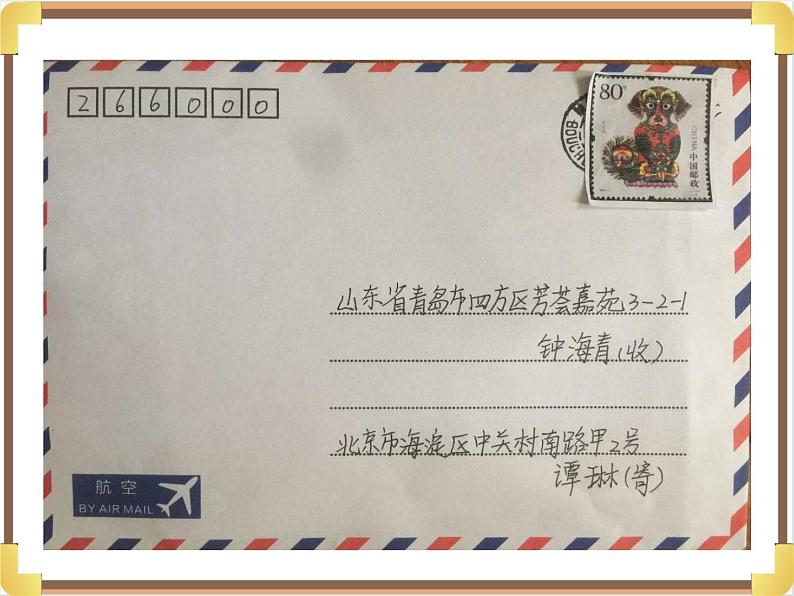 266000
80分
CHINA
中国邮政
山东省青岛市四方区芳荟嘉苑3-2-1
钟海青(收)
北京市海淀区中关村南路甲2号
谭琳(寄)
航空
BY AIR MAIL